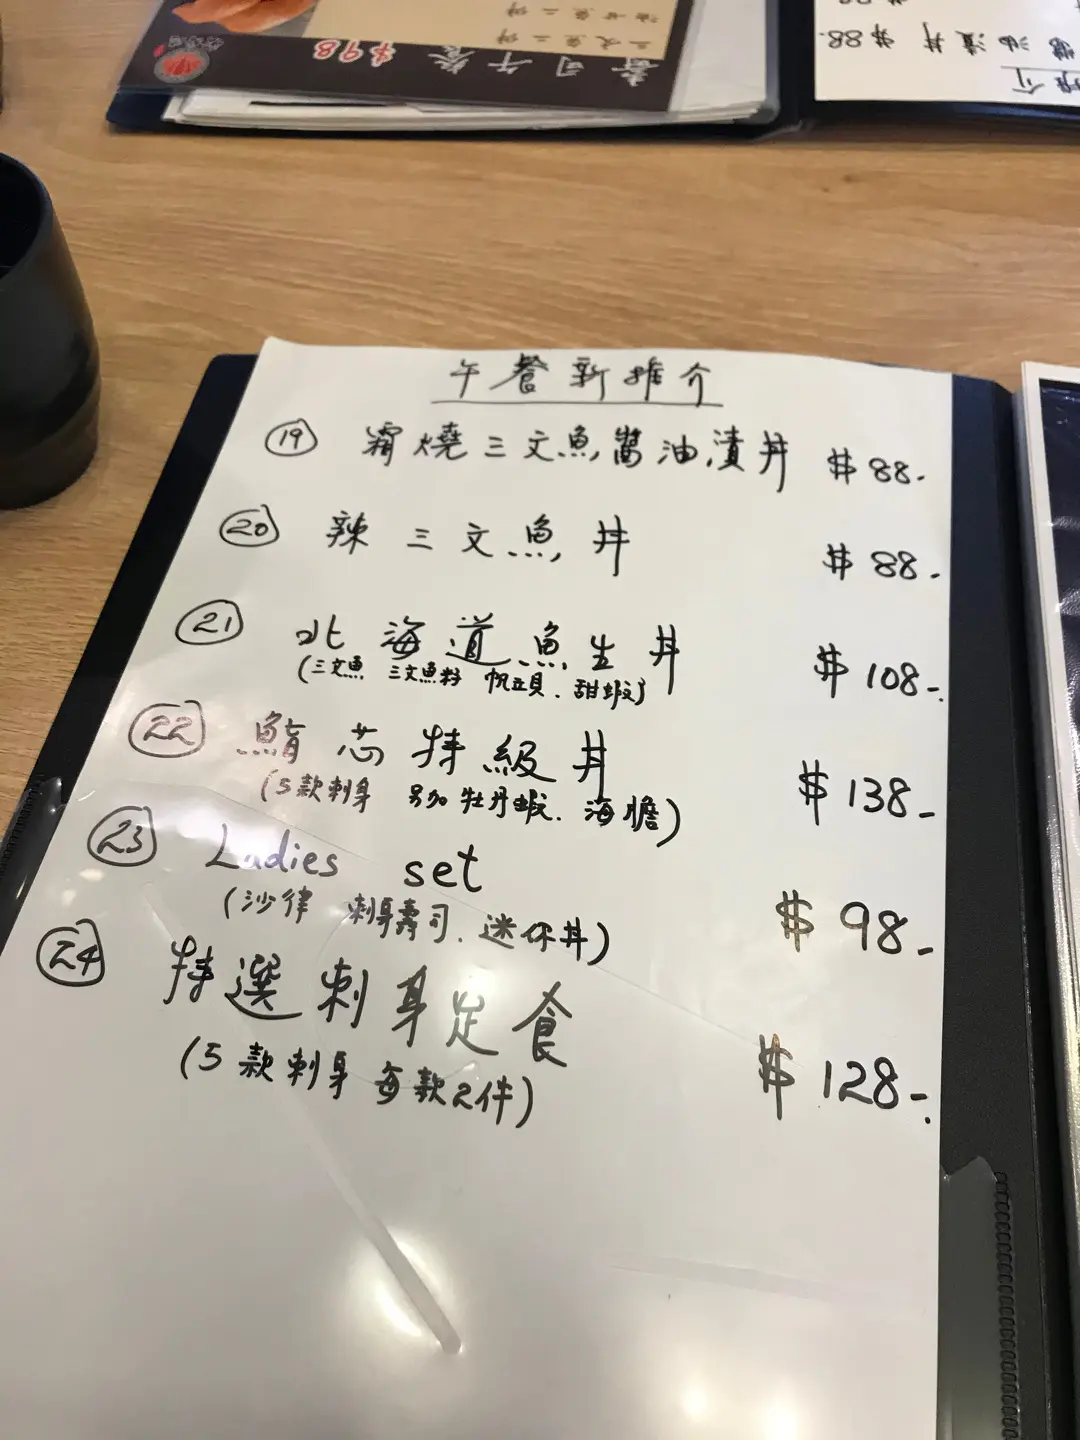 壽司午餐 $98
三文魚二件
油甘魚二件
推介
醬油漬丼 $88.
午餐新推介
19 霜燒三文魚醬油漬丼 $88.
20 辣三文魚丼 $88.
21 北海道魚生丼 $108-.
(三文魚 三文魚籽 帆立貝. 甜蝦)
22 鮨芯特級丼 $138-
(5款刺身 另加牡丹蝦. 海膽)
23 Ladies set $98-
(沙律 刺身壽司. 迷你丼)
24 特選刺身定食 $128-.
(5款刺身 每款2件)